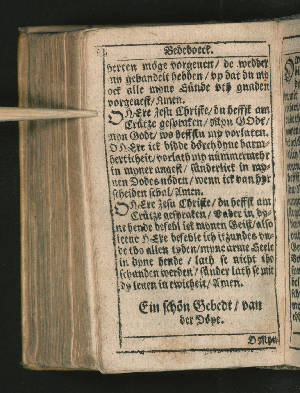 Bedeboeck.
hereen möge vorgeuen / de wedder
my gehandelt hebben / vp dat du my
ock alle myne Sünde vth gnaden
vorgeuest / Amen.
O HEre Jesu Christe / du heffst am
Crütze gespraken / Myn GOdt /
myn Godt / wo heffstu my vorlaten.
O HEre ick bidde dörch dyne barm-
herticheit / vorlath my nümmermehr
in myner angest / sünderlick in my-
nen Dodes nöden / wenn ick van hyr
scheiden schal / Amen.
O HEre Jesu Christe / du heffst am
Crütze gespraken / Vader in dy-
ne hende befehl ick mynen Geist / also
leeue HEre befehle ick itzundes vn-
de tho allen tyden / myne arme Seele
in dyne hende / lath se nicht tho
schanden werden / sünder lath se mit
dy leuen in ewicheit / Amen.
Ein schön Gebedt / van
der Döpe.